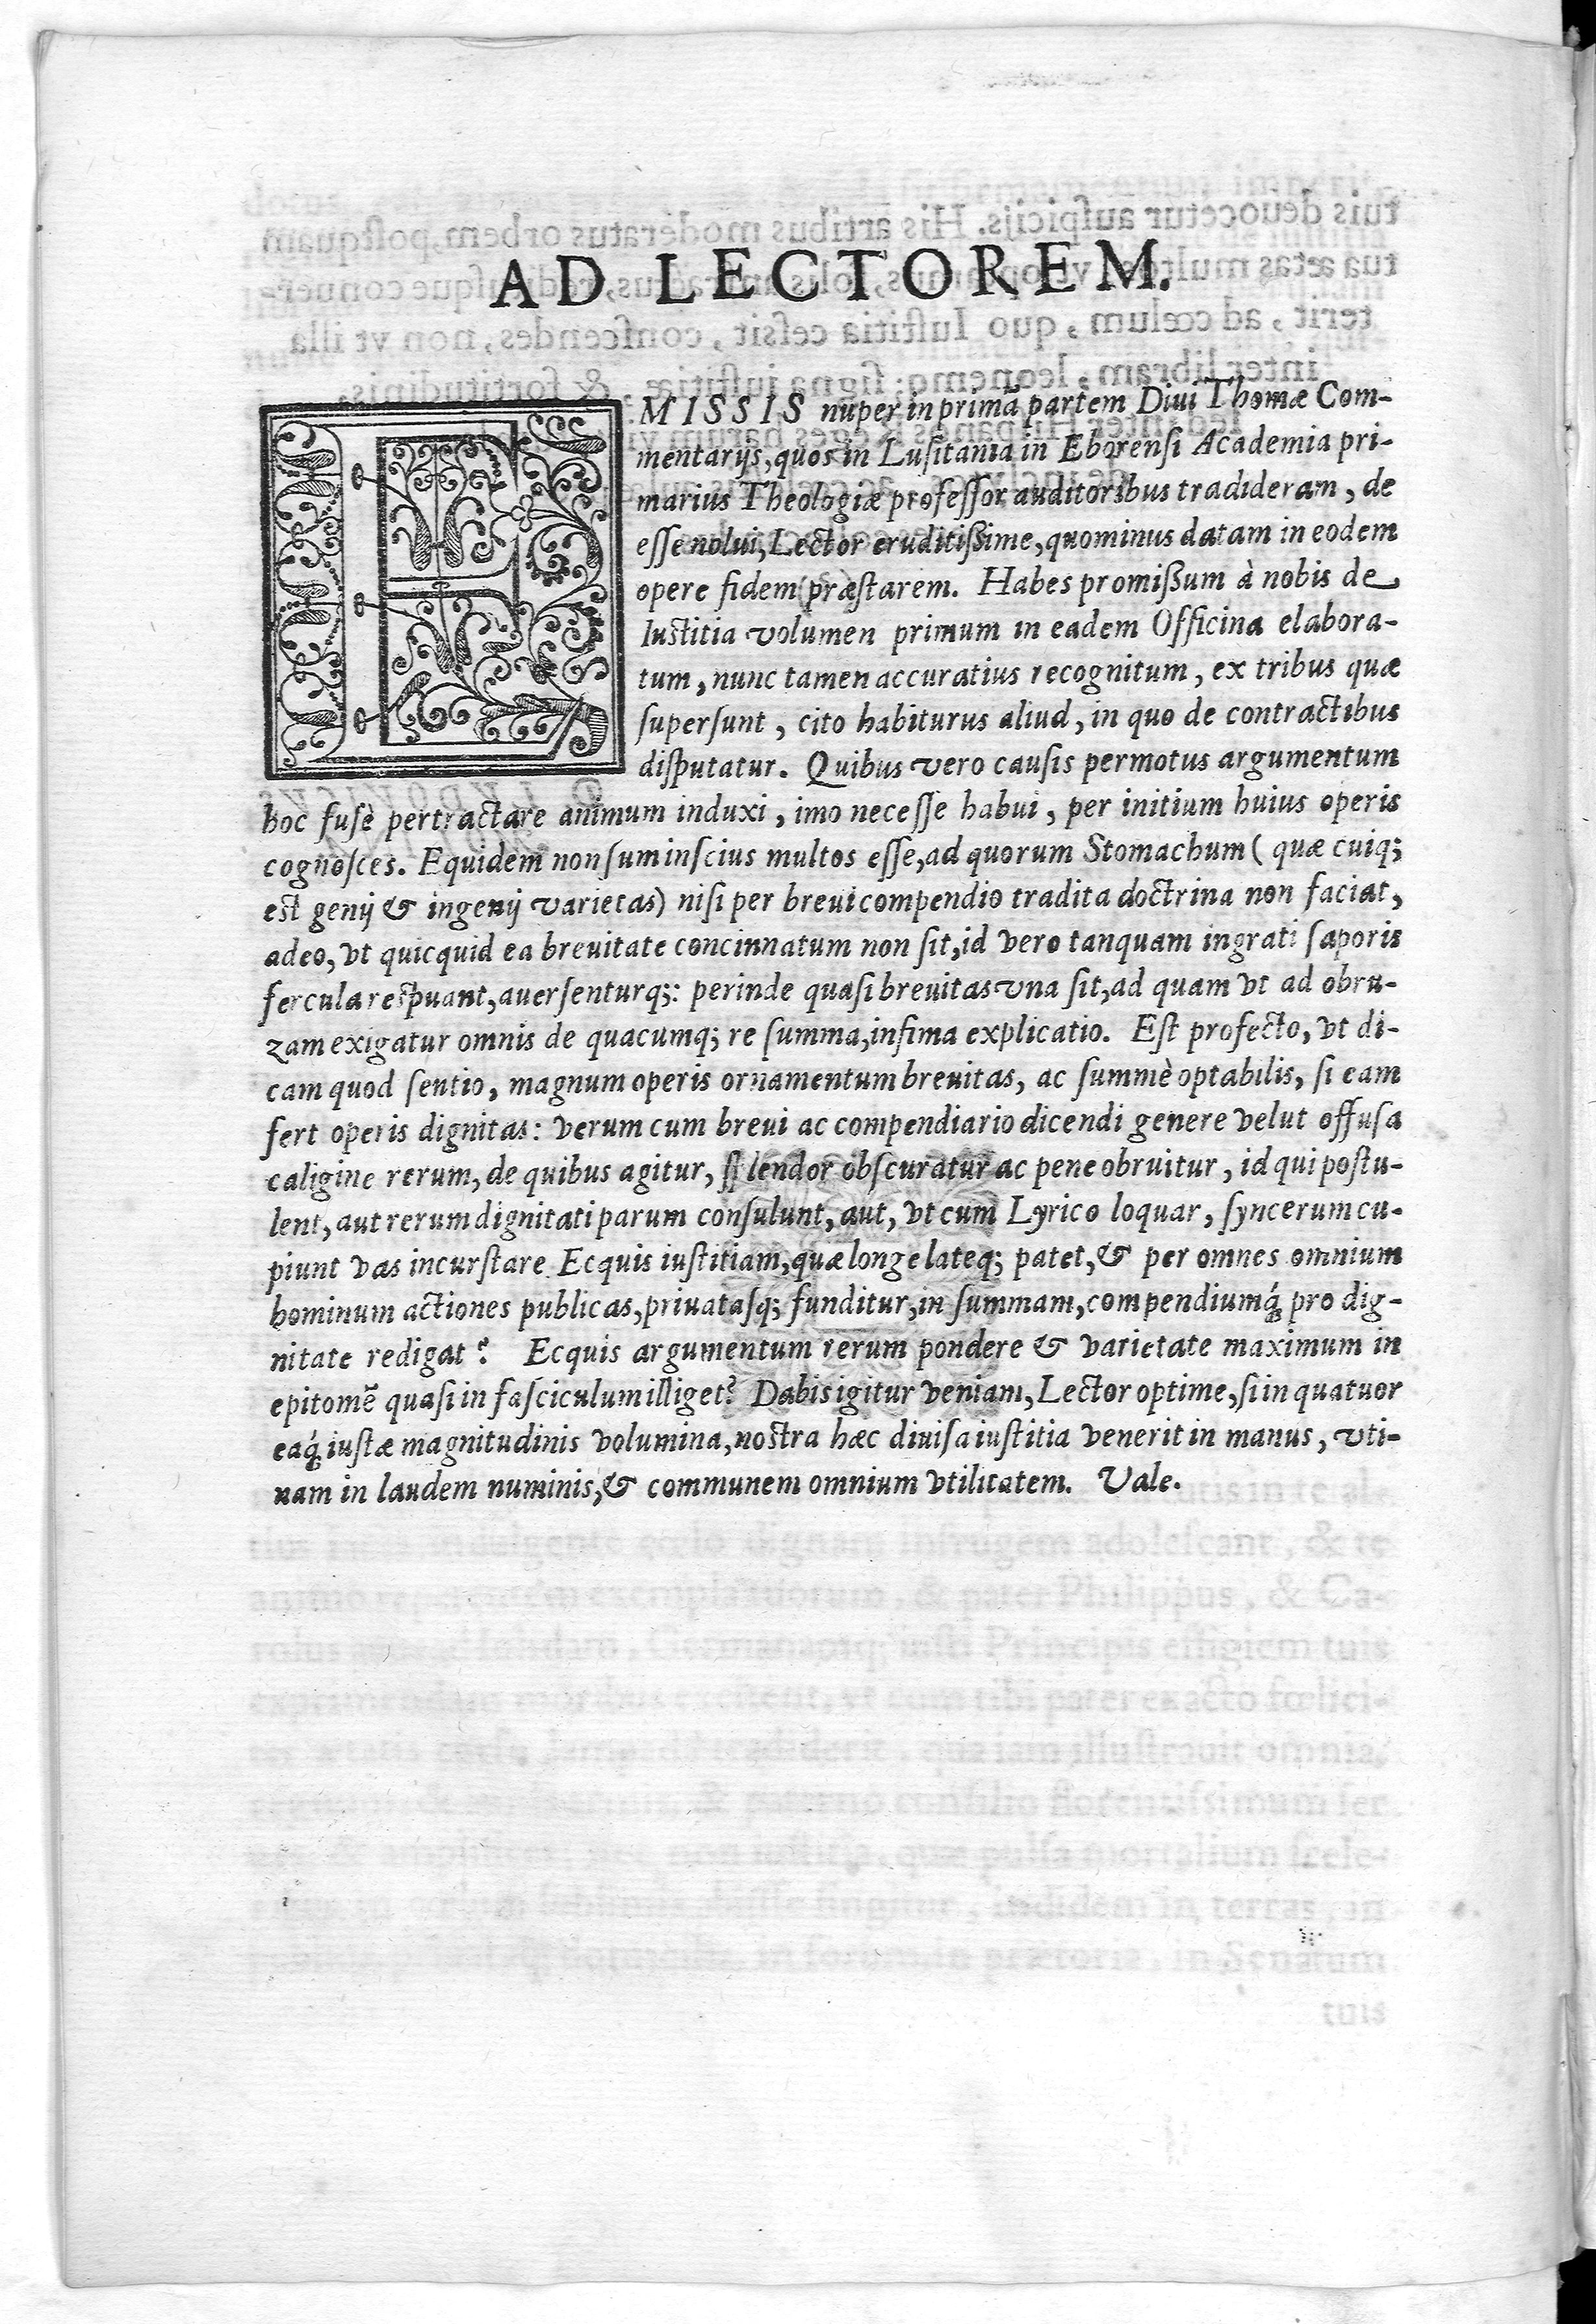 AD LECTOREM.
EMISSIS nuper in primã partem Diui Thomæ Com-
mentarijs, quos in Lusitania in Eborensi Academia pri-
marius Theologiæ professor auditoribus tradideram, de
esse nolui, Lector eruditißime, quominus datam in eodem
opere fidem præstarem. Habes promißum à nobis de
Iustitia volumen primum in eadem Officina elabora-
tum, nunc tamen accuratius recognitum, ex tribus quæ
supersunt, cito habiturus aliud, in quo de contractibus
disputatur. Quibus vero causis permotus argumentum
hoc fusè pertractare animum induxi, imo necesse habui, per initium huius operis
cognosces. Equidem non sum inscius multos esse, ad quorum Stomachum ( quæ cuiq;
est genij & ingenij varietas) nisi per breui compendio tradita doctrina non faciat,
adeo, vt quicquid ea breuitate concinnatum non sit, id vero tanquam ingrati saporis
fercula respuant, auersenturq;: perinde quasi breuitas vna sit, ad quam vt ad obru-
zam exigatur omnis de quacumq; re summa, infima explicatio. Est profecto, vt di-
cam quod sentio, magnum operis ornamentum breuitas, ac summè optabilis, si eam
fert operis dignitas: verum cum breui ac compendiario dicendi genere velut offusa
caligine rerum, de quibus agitur, splendor obscuratur ac pene obruitur, id qui postu-
lent, aut rerum dignitati parum consulunt, aut, vt cum Lyrico loquar, syncerum cu-
piunt vas incurstare. Ecquis iustitiam, quæ longe lateq; patet, & per omnes omnium
hominum actiones publicas, priuatasq; funditur, in summam, compendiumq́; pro dig-
nitate redigat? Ecquis argumentum rerum pondere & varietate maximum in
epitomẽ quasi in fasciculum illiget? Dabis igitur veniam, Lector optime, si in quatuor
eaq́; iustæ magnitudinis volumina, nostra hæc diuisa iustitia venerit in manus, vti-
nam in laudem numinis, & communem omnium vtilitatem. Vale.